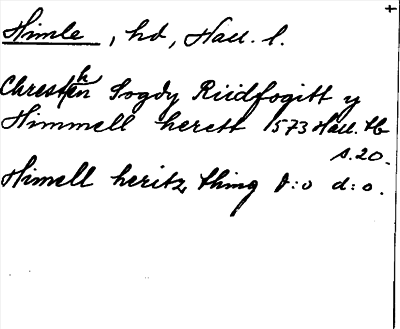 Himle, hd, Hall. l.
Chrestenn Sogdy Riidfogitt y
Himmell herett 1573 Hall. tb
s. 20.
Himell heritz thing d:o d:o.